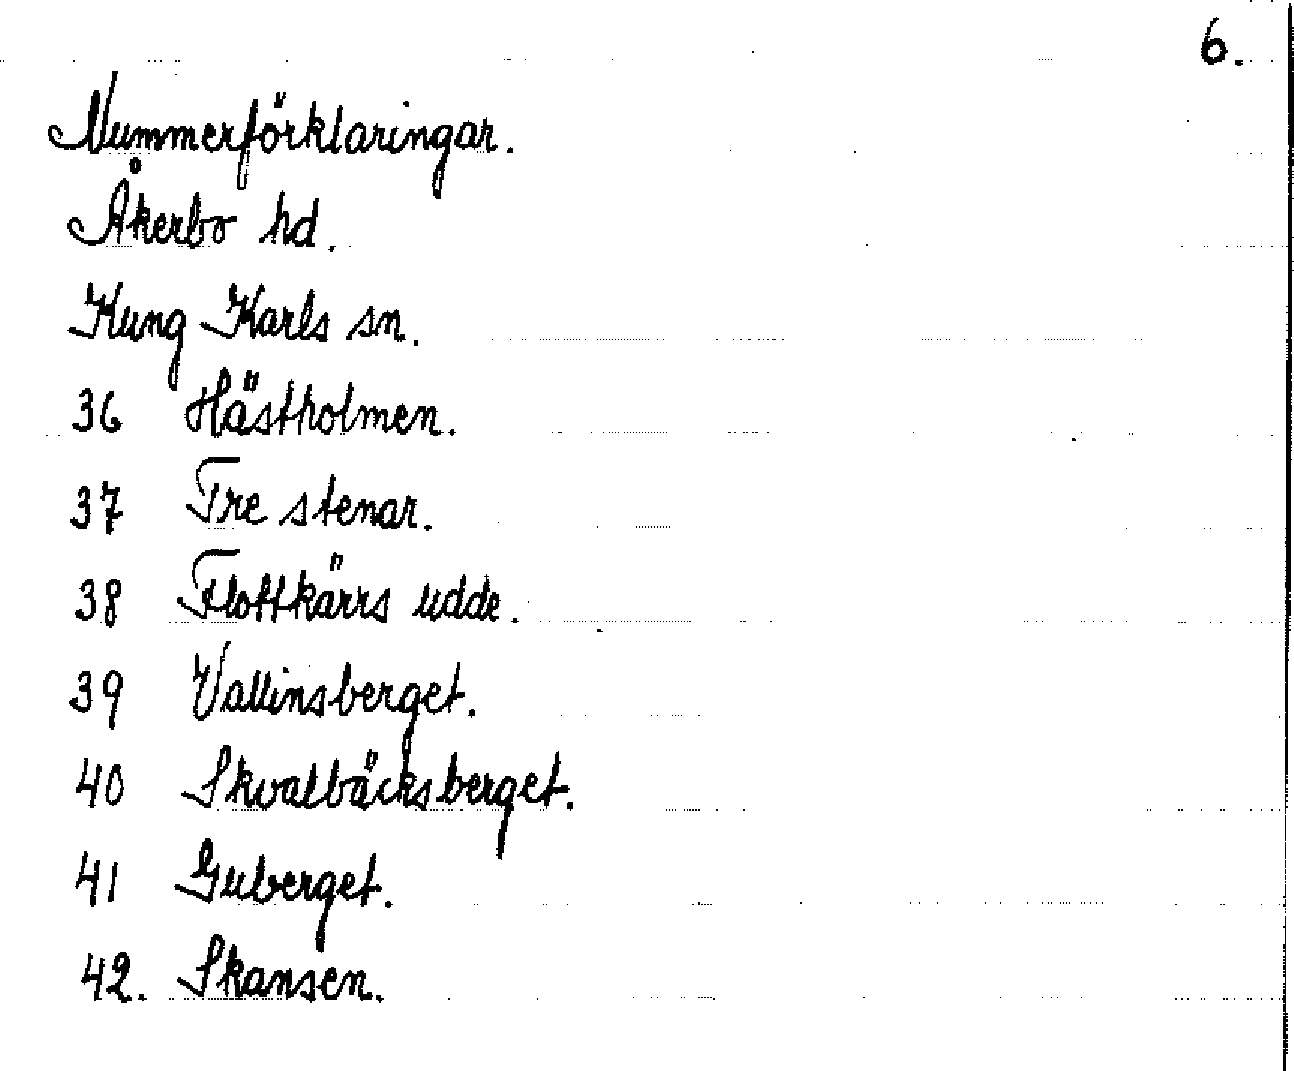 6.
Nummerförklaringar.
Åkerbo hd.
Kung Karls sn.
36 Hästholmen.
37 Tre stenar.
38 Flottkärrs udde.
39 Vallinsberget.
40 Skvalbäcksberget.
41 Guberget.
42. Skansen.